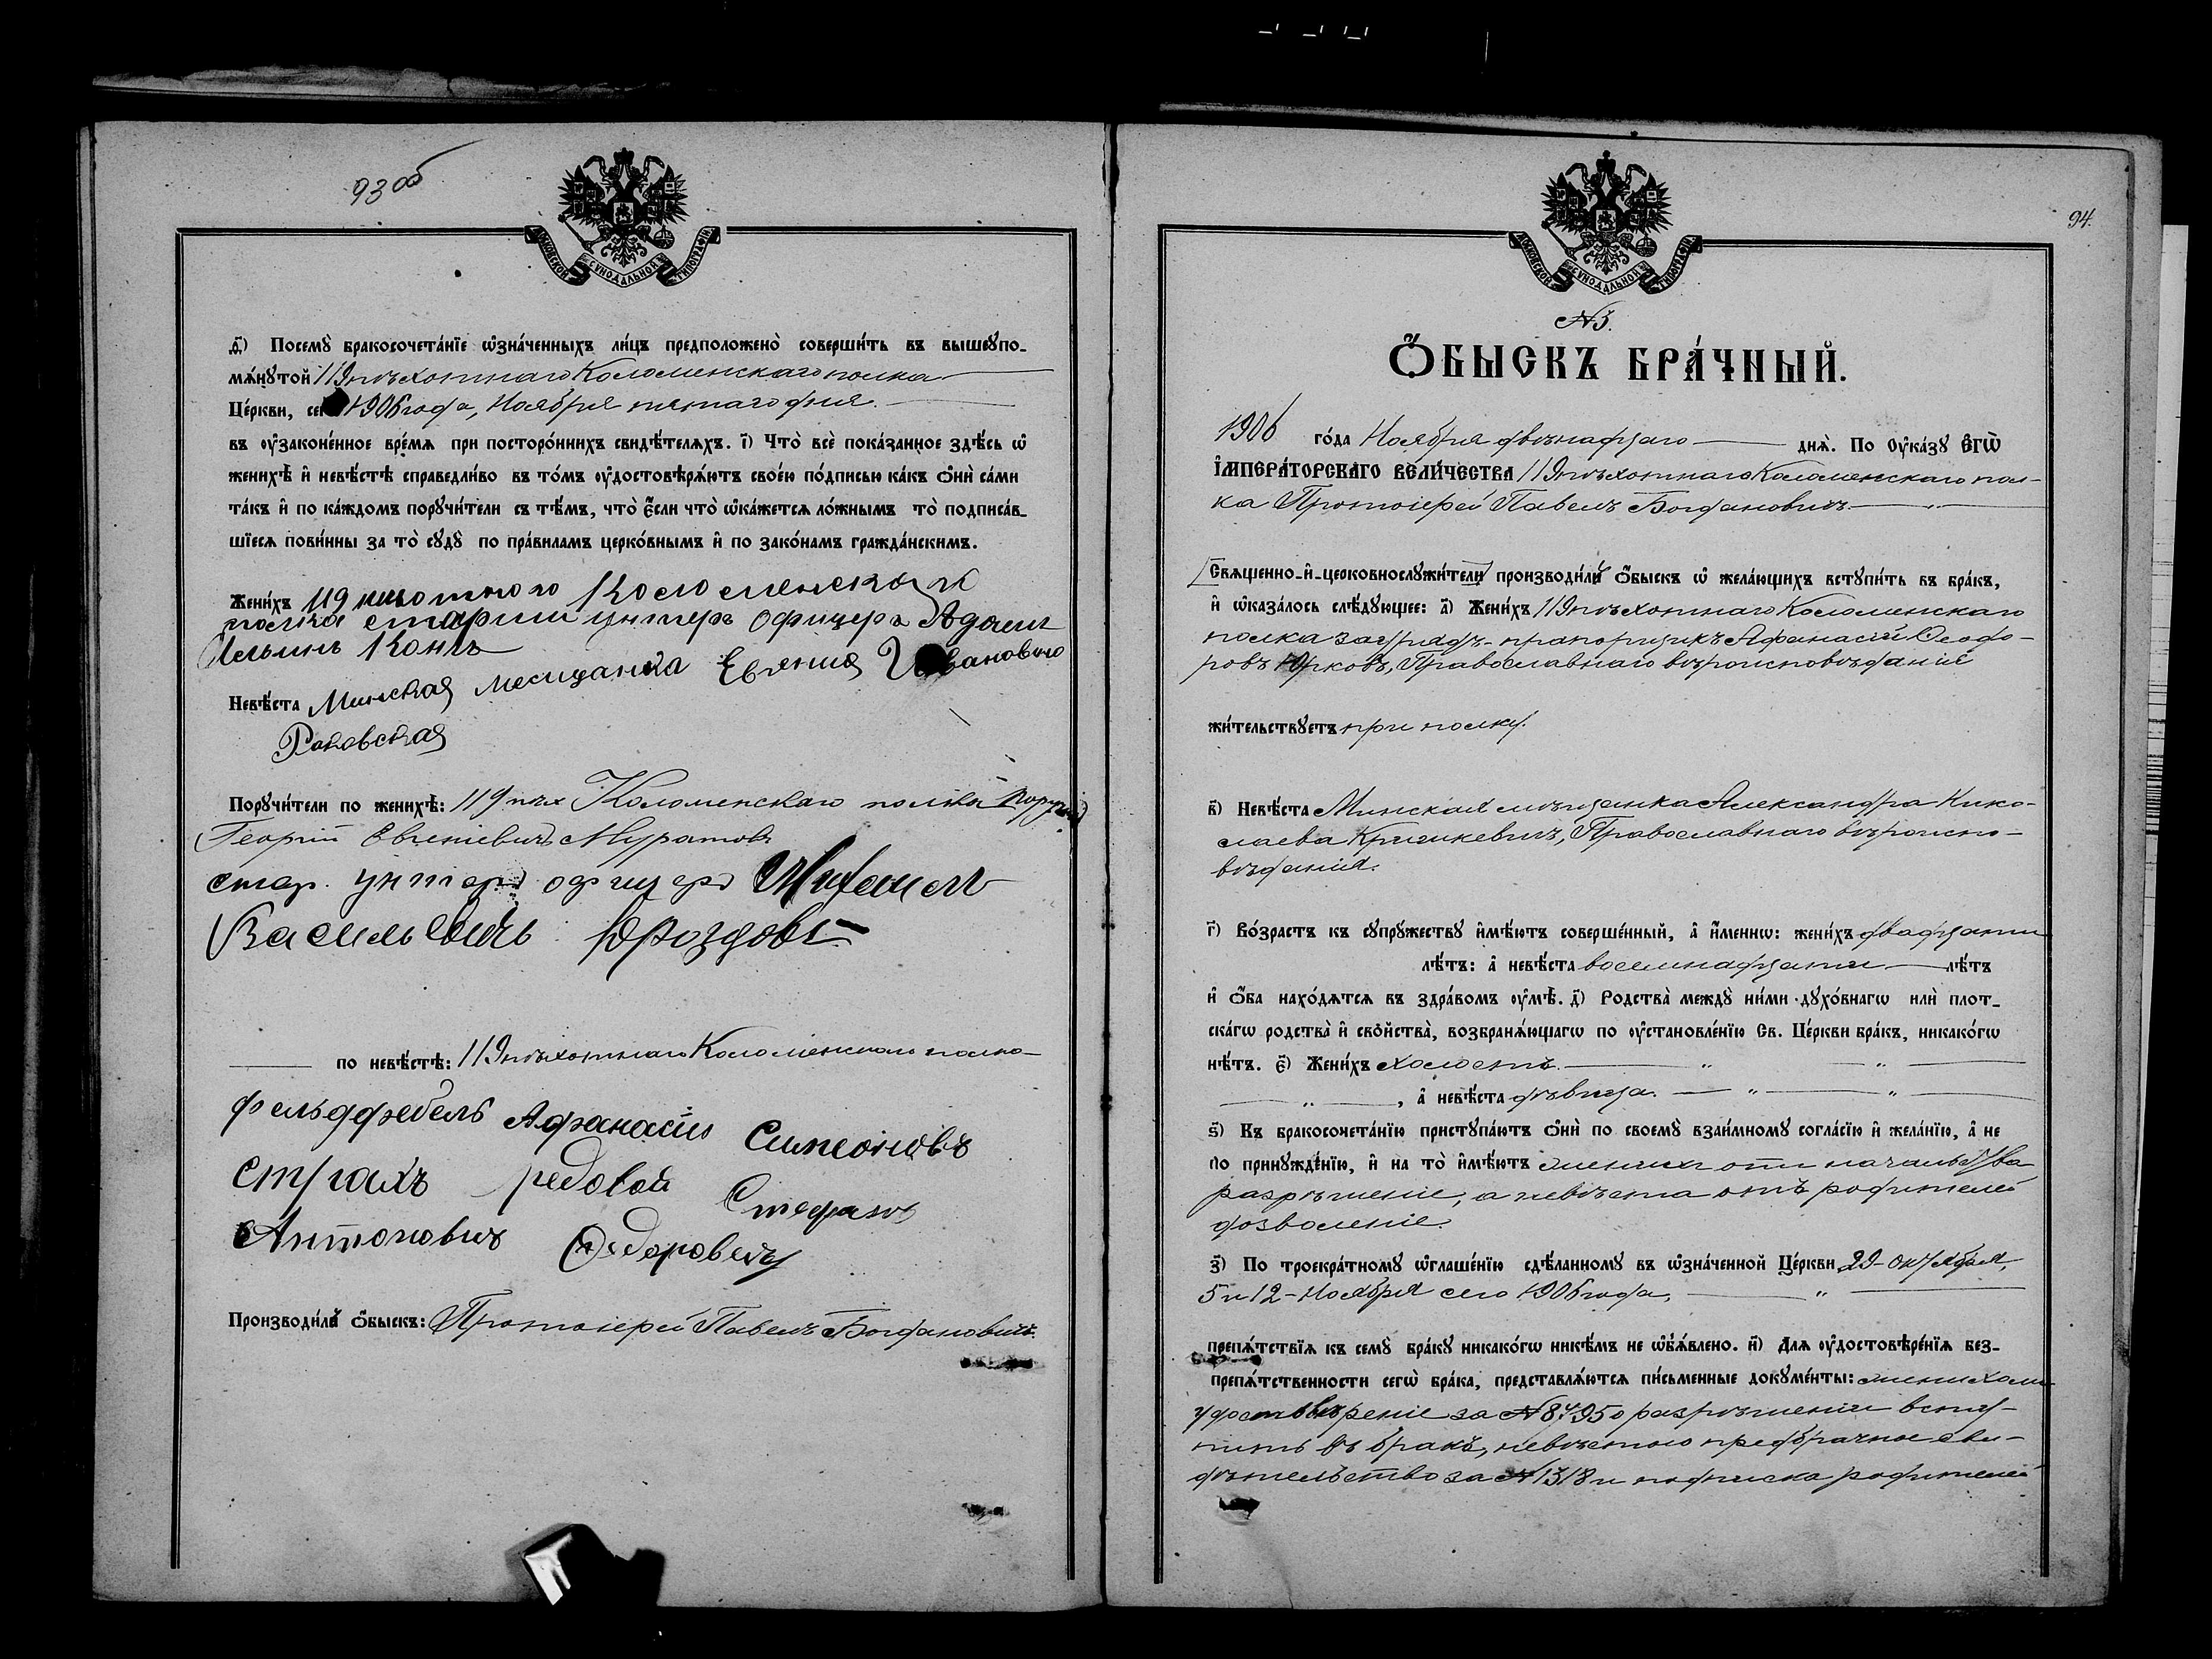 93 об
МОСКОВСКОЙ СѴНОДАЛЬНОЙ ТИПОГРАФІИ
д҃і) Посемꙋ̀ бракосочета́нїе ѡ҆зна́ченныхъ ли́цъ предположено̀ соверши́ть въ вышеꙋпо-
мѧ́нꙋтой 119 пѣхотнаго Коломенскаго полка
Це́ркви, сего 1906 года, Ноября пятаго дня.
въ оу҆законе́нное вре́мѧ при посторо́ннихъ свидѣ́телѧхъ. і҃) Что̀ всѐ пока́занное здѣ́сь ѡ҆
женихѣ̀ и҆ невѣ́стѣ справедли́во въ то́мъ оу҆достовѣрѧ́ютъ свое́ю по́дписью ка́къ ѻ҆нѝ са́ми
та́къ и҆ по ка́ждомъ порꙋчи́тели съ тѣ́мъ, что̀ є҆́сли что̀ ѡ҆ка́жетсѧ ло́жнымъ то̀ подписа́в-
шїесѧ пови́нны за то̀ сꙋдꙋ̀ по пра́виламъ церко́внымъ и҆ по зако́намъ гражда́нскимъ.
Жени́хъ 119 Коломенскаго
полка старши унтеръ офицеръ Адамъ
Ильинъ Конъ
Невѣ́ста Минская месщанка Евгения Ивановна
Раковская
Порꙋчи́тели по женихѣ̀: 119 пѣх Коломенскаго полка Поручик
Георгій Евгеніевичъ Муратовъ
стар. унтеръ офицеръ Михаилъ
Васильевичъ Дроздовъ
по невѣ́стѣ: 119 пѣхотнаго Коломенскаго полка
фельдфебель Афанасій Симеоновъ
Страхъ редовой Стефанъ
Антоновичъ Федоровичъ
Производи́лъ ѻ҆́быскъ: Протоіерей Павелъ Богдановичъ.
94.
МОСКОВСКОЙ СѴНОДАЛЬНОЙ ТИПОГРАФІИ
№ 3.
Ѻ҆́БЫСКЪ БРА́ЧНЫЙ.
1906 го́да Ноября двѣнадцаго днѧ̀. По Оу҆ка́зꙋ Є҆гѡ̀
І҆МПЕРА́ТОРСКАГО ВЕЛИ́ЧЕСТВА 119 пѣхотнаго Коломенскаго пол-
ка Протоіерей Павелъ Богдановичъ
Свѧще́нно-и҆-церковнослꙋжи́тели производи́лъ ѻ҆́быскъ ѡ҆ жела́ющихъ встꙋпи́ть въ бра́къ,
и҆ ѡ҆каза́лось слѣ́дꙋющее: а҃) Жени́хъ 119 пѣхотнаго Коломенскаго
полка зауряд-прапорщикъ Афанасій Ѳеодо-
ровъ Юрковъ, Православнаго вѣроисповѣданія
жи́тельствꙋетъ при полку.
в҃) Невѣ́ста Минская мѣщанка Александра Нико-
лаева Кришкевичъ, Православнаго вѣроиспо-
вѣданія.
г҃) Во́зрастъ къ сꙋпрꙋ́жествꙋ и҆мѣ́ютъ соверше́нный, а҆ и҆́менно: жени́хъ двадцати
лѣ́тъ: а҆ невѣ́ста восемнадцати лѣ́тъ
и҆ ѻ҆́ба нахо́дѧтсѧ въ здра́вомъ оу҆мѣ̀. д҃) Родства̀ междꙋ̀ ни́ми дꙋхо́внагѡ илѝ плот-
ска́гѡ родства̀ и҆ сво́йства, возбранѧ́ющагѡ по оу҆становле́нїю Св. Це́ркви бра́къ, никако́гѡ
нѣ́тъ. є҃) Жени́хъ холостъ.
, а҆ невѣ́ста дѣвица.
ѕ҃) Къ бракосочета́нїю пристꙋпа́ютъ ѻ҆нѝ по своемꙋ̀ взаи́мномꙋ согла́сїю и҆ жела́нїю, а҆ не
по принꙋжде́нїю, и҆ на то̀ и҆мѣ́ютъ женихъ отъ начальства
разрѣшеніе, а невѣста отъ родителей
дозволеніе.
з҃) По троекра́тномꙋ ѡ҆глаше́нїю сдѣ́ланномꙋ въ ѡ҆зна́ченной Це́ркви 29 - октября,
5 и 12 - Ноября сего 1906 года,
препѧ́тствїѧ къ семꙋ̀ бра́кꙋ никако́гѡ никѣ́мъ не ѡ҆б̾ѧ́влено. и҃) Длѧ оу҆достовѣре́нїѧ без-
препѧ́тственности сегѡ̀ бра́ка, представлѧ́ютсѧ пи́сьменные докꙋме́нты: женихомъ
удостовѣреніе за № 8495 о разрѣшеніи всту-
пить въ бракъ, невѣстою предбрачное сви-
дѣтельство за № 1318 и подписка родителей